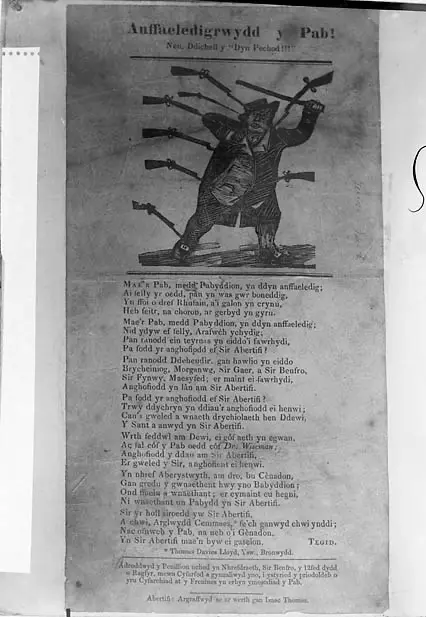 Anffaeledigrwydd y Pab!
Neu, Ddichell y "Dyn Pechod!!!"
MAE'R Pab, medd Pabyddion, yn ddyn anffaeledig;
Ai felly yr oedd, pan yn was gwr boneddig,
Yn ffoi o dref Rhufain, a'i galon yn crynu,
Heb feitr, na choron, ar gerbyd yn gyru.
Mae'r Pab, medd Pabyddion, yn ddyn anffaeledig;
Nid ydyw ef felly, Arafwch ychydig;
Pan ranodd ein teyrnas yn eiddo'i fawrhydi,
Pa fodd yr anghofiodd ef Sir Abertifi?
Pan ranodd Ddeheudir, gan hawlio yn eiddo
Brycheiniog, Morganwg, Sir Gaer, a Sir Benfro,
Sir Fynwy, Maesyfed; er maint ei fawrhydi,
Anghofiodd yn lân am Sir Abertifi.
Pa fodd yr anghofiodd ef Sir Abertifi?
Trwy ddychryn yn ddiau'r anghofiodd ei henwi;
Can's gweled a wnaeth drychiolaeth hen Ddewi,
Y Sant a anwyd yn Sir Abertifi.
Wrth feddwl am Dewi, ei gôf aeth yn egwan,
Ac fal côf y Pab oedd côf Dr. Wiseman;
Anghofiodd y ddau am Sir Abertifi,
Er gweled y Sir, anghofient ei henwi.
Yn nhref Aberystwyth, am dro, bu Cènadon,
Gan gredu y gwnaethent hwy yno Babyddion;
Ond ffaelu a wnaethant; er cymaint eu hegni,
Ni wnaethant un Pabydd yn Sir Abertifi.
Sir yr holl siroedd yw Sir Abertifi,
A chwi, Arglwydd Cemmaes,* fe'ch ganwyd chwi ynddi;
Nac ofnwch y Pab, na neb o'i Gènadon,
Yn Sir Abertifi mae'n byw ei gaseion. TEGID.
* Thomas Davies Lloyd, Ysw., Bronwydd.
Adroddwyd y Penillion uchod yn Nhrefdraeth, Sir Benfro, y 12fed dydd
o Ragfyr, mewn Cyfarfod a gynnaliwyd yno, i ystyried y priodoldeb o
yru Cyfarchiad at y Frenhines yn erbyn ymosodiad y Pab.
Abertifi: Argraffwyd ac ar werth gan Isaac Thomas.